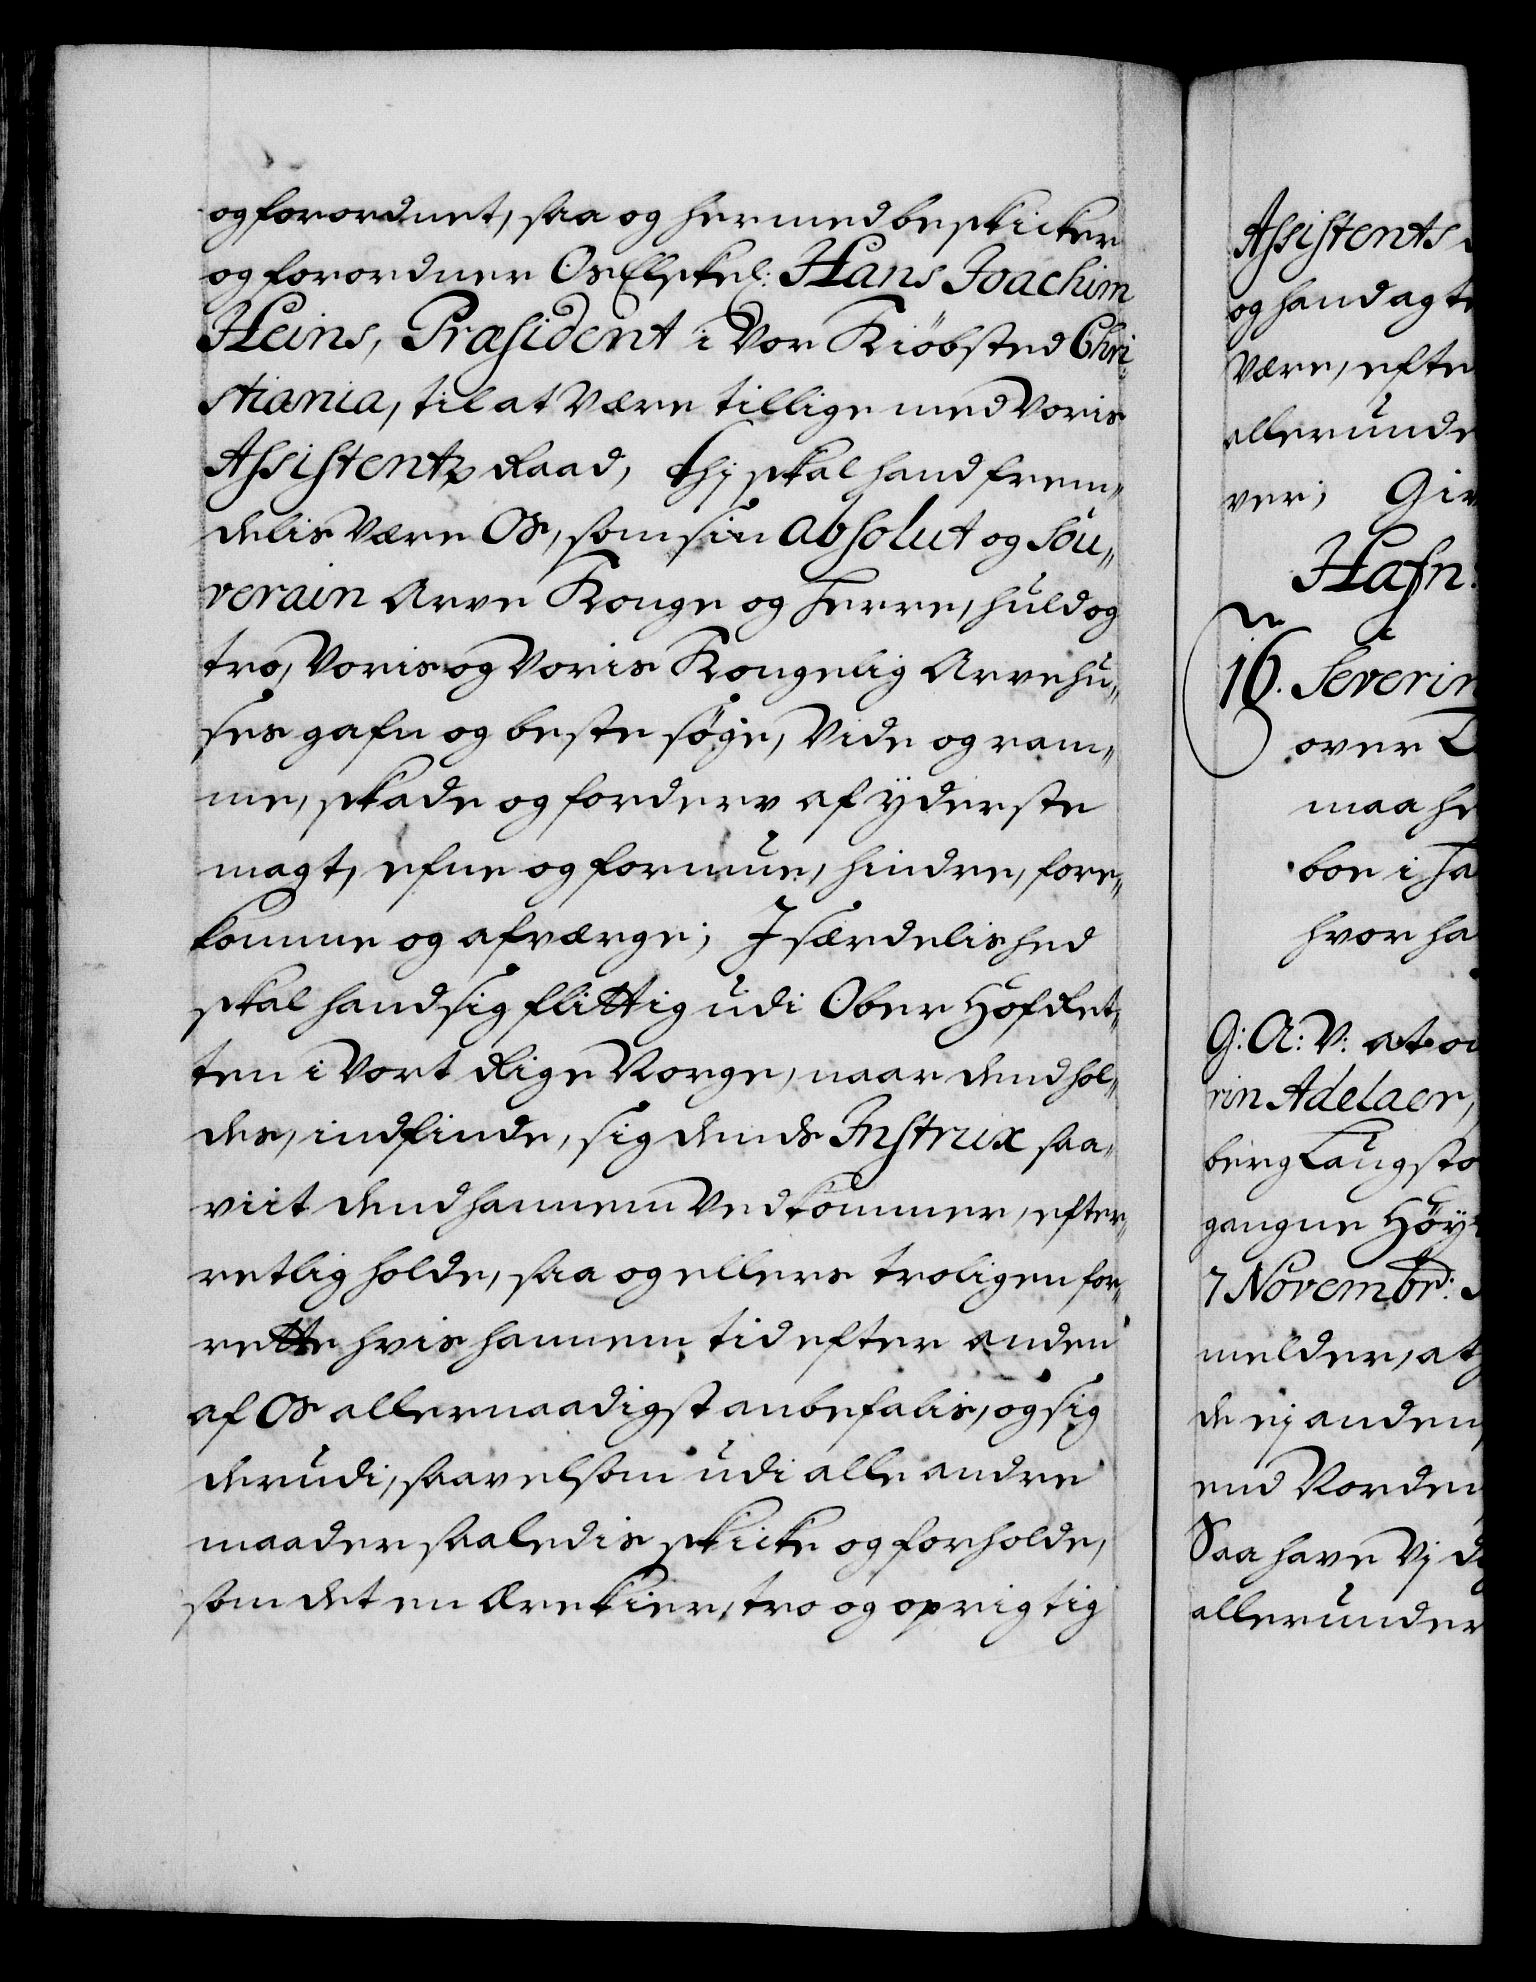 og forordnet, saa og hermed beskicker
og forordner Os Elskel: Hans Joachim
Heins, Præsident i Vor Kiöbsted Chri
stiania, til at være tillige med Voris
Assistentz Raad, Thj skal hand frem„
delis være Os, som sin absolut og Sou„
verain Arve Konge og Herre, huld og
tro, Voris og Voris Kongelig Arvehu„
ses gafn og beste søge, Vide og ram„
me, skade og forderv af yderste
magt, efne og formue, hindre, fore„
komme og afværge; J særdelished
skal hand sig flittig udi Ober Hof Ret„
ten i Vort Rige Norge, naar dend hol„
des, indfinde, sig dends Instrux saa„
viit dend hannem Vedkommer, efter„
retlig holde, saa og ellers troligen for„
rette hvis hannem tid efter anden
af Os allernaadigst anbefalis, og sig
derudi, saavelsom udi alle andre
maader saaledis skicke og forholde,
som det en Ærekier, tro og oprigtig
Assistents
og hand agte
være, efte
allerunde
ver; Giv
Hafn:
16. Severin
over
maa he
boe i
hvor ha
G: A: V: at
rin Adelaer,
berg Laugsto
gangne Höy
7 Novembr:
melder, at
de ej anden
end Norden
Saa have Vj
allerunder